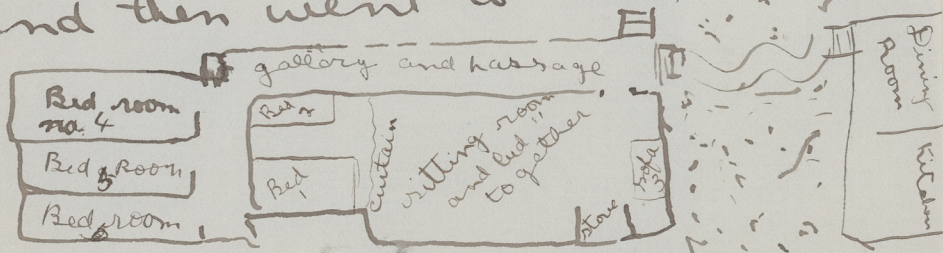 and then went to
gallery and passage
Bed room
no. 4
Bed Room
5
Bed room
6
Bed
2
Bed
1
curtain
sitting room
and bed "
to gether
sofa
3
stove
Dining
Room
Kitchen